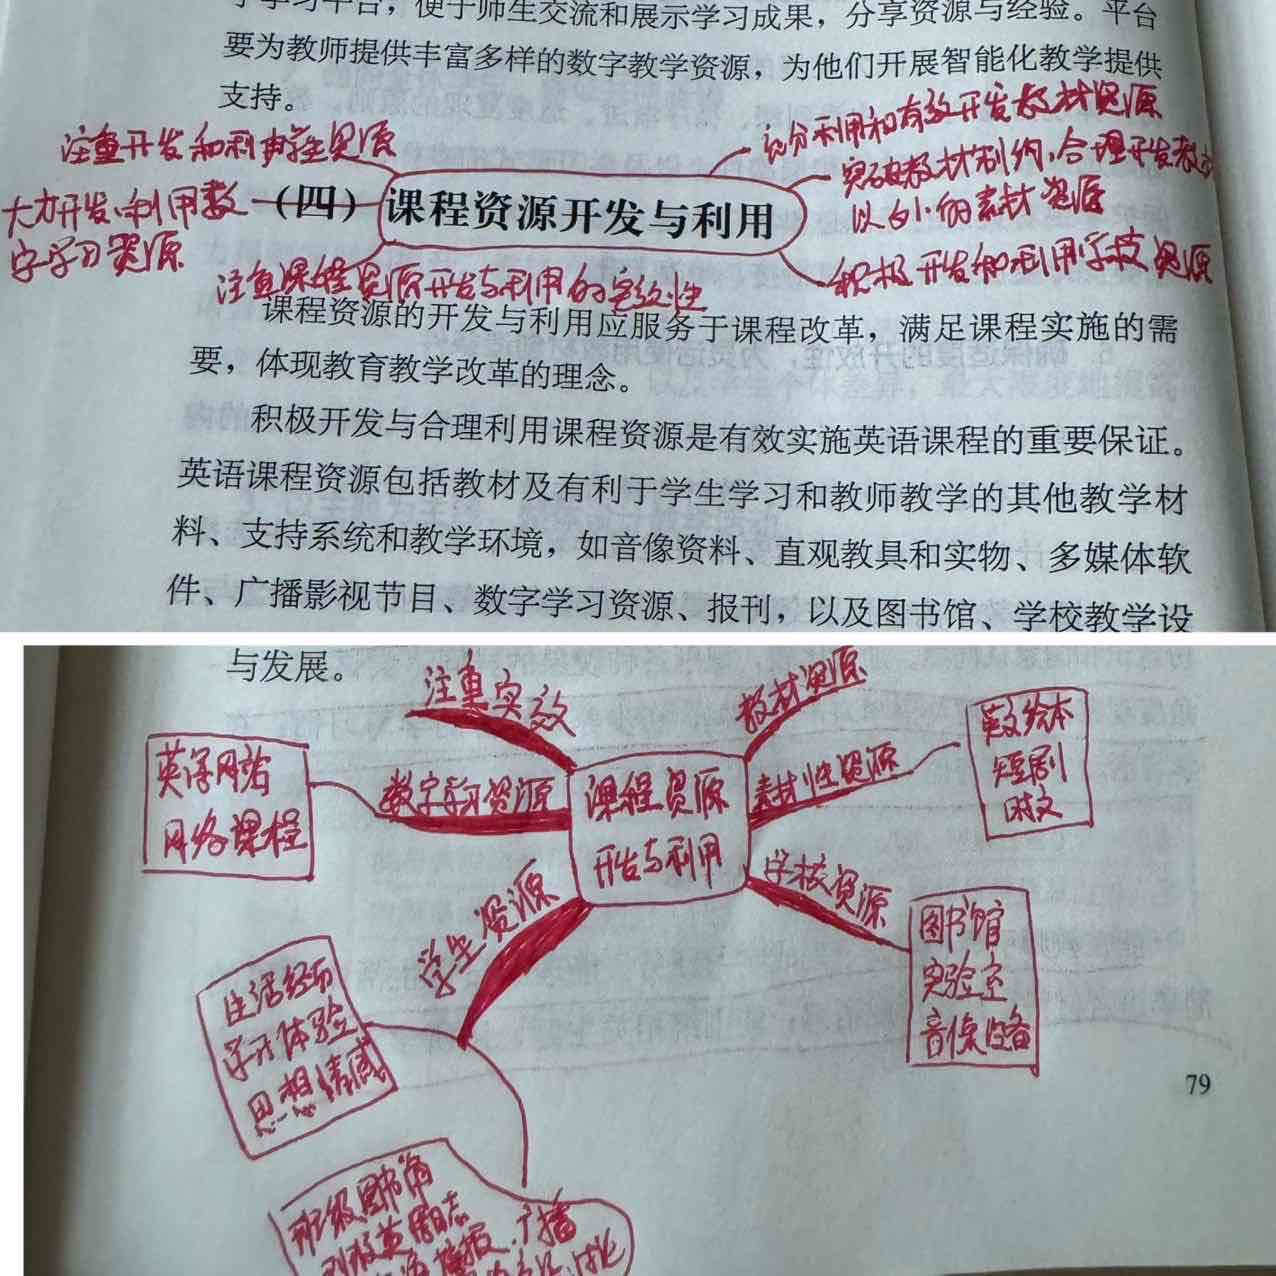 了学习平台，便于师生交流和展示学习成果，分享资源与经验。平台
要为教师提供丰富多样的数字教学资源，为他们开展智能化教学提供
支持。
充分利用和有效开发教材资源
注重开发和利用学生资源
突破教材制约，合理开发教材
以外的素材资源
大力开发、利用数
字学习资源
（四）课程资源开发与利用
积极开发和利用学校资源
注重课程资源开发与利用的实效性
课程资源的开发与利用应服务于课程改革，满足课程实施的需
要，体现教育教学改革的理念。
积极开发与合理利用课程资源是有效实施英语课程的重要保证。
英语课程资源包括教材及有利于学生学习和教师教学的其他教学材
料、支持系统和教学环境，如音像资料、直观教具和实物、多媒体软
件、广播影视节目、数字学习资源、报刊，以及图书馆、学校教学设
与发展。
注重实效
教材资源
英语网站
网络课程
数字学习资源
课程资源
开发与利用
素材性资源
英文绘本
短剧
时文
学校资源
图书馆
实验室
音像设备
学生资源
生活经历
学习体验
思想情感
班级图书角
广播
79